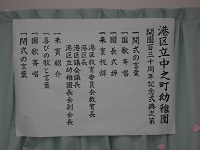 港区立中之町幼稚園
開園百三十周年記念式典次第
一 開式の言葉
一 国歌斉唱
一 園長挨拶
一 来賓祝辞
港区教育委員会教育長
港区長
港区議会議長
港区立幼稚園長会副会長
一 来賓紹介
一 喜びの歌と言葉
一 国歌斉唱
一 閉式の言葉